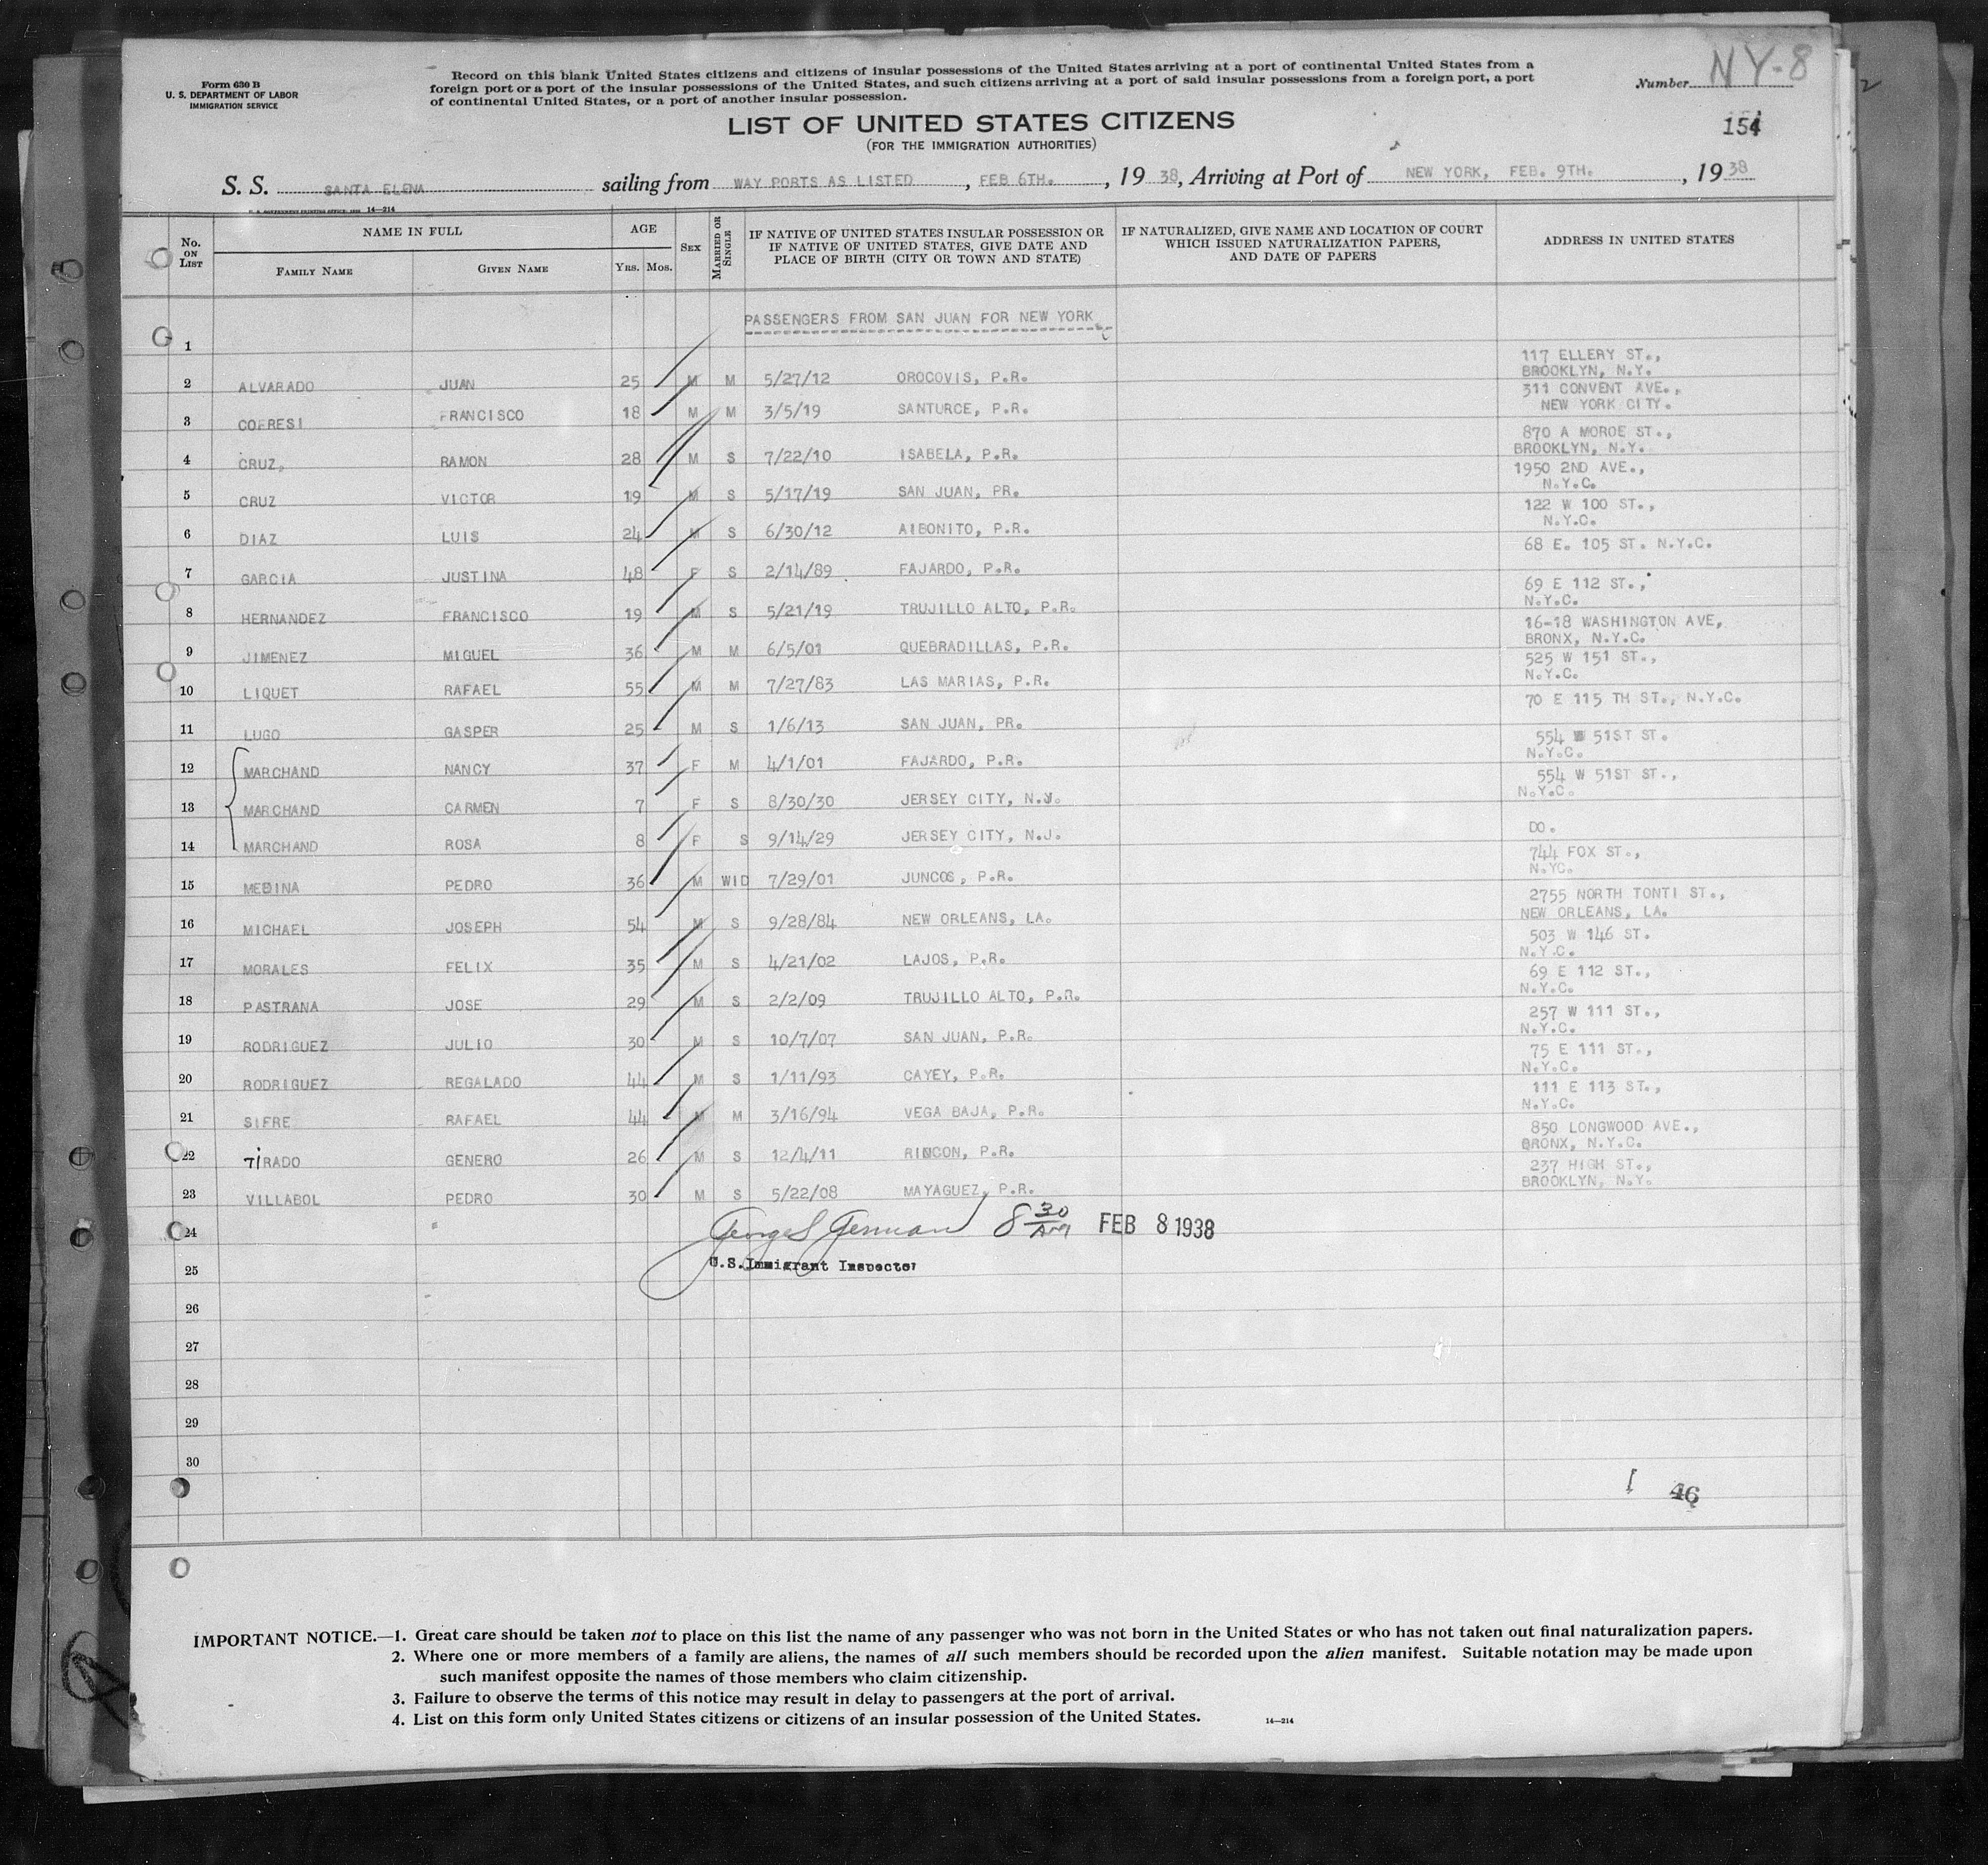 Form 630 B
U. S. DEPARTMENT OF LABOR
IMMIGRATION SERVICE
Record on this blank United States citizens and citizens of insular possessions of the United States arriving at a port of continental United States from a
foreign port or a port of the insular possessions of the United States, and such citizens arriving at a port of said insular possessions from a foreign port, a port
of continental United States, or a port of another insular possession.
Number NY-8
LIST OF UNITED STATES CITIZENS
(FOR THE IMMIGRATION AUTHORITIES)
154
S. S. SANTA ELENA sailing from WAY PORTS AS LISTED, FEB 6TH., 19 38, Arriving at Port of NEW YORK, FEB. 9TH., 19 38
14—214
No. ON LIST NAME IN FULL FAMILY NAME GIVEN NAME AGE YRS. MOS. SEX MARRIED OR SINGLE IF NATIVE OF UNITED STATES INSULAR POSSESSION OR IF NATIVE OF UNITED STATES, GIVE DATE AND PLACE OF BIRTH (CITY OR TOWN AND STATE) IF NATURALIZED, GIVE NAME AND LOCATION OF COURT WHICH ISSUED NATURALIZATION PAPERS, AND DATE OF PAPERS ADDRESS IN UNITED STATES
1 PASSENGERS FROM SAN JUAN FOR NEW YORK
2 ALVARADO JUAN 25 M M 5/27/12 OROCOVIS, P.R. 117 ELLERY ST., BROOKLYN, N.Y.
3 COFRESI FRANCISCO 18 M M 3/5/19 SANTURCE, P.R. 311 CONVENT AVE., NEW YORK CITY.
4 CRUZ, RAMON 28 M S 7/22/10 ISABELA, P.R. 870 A MOROE ST., BROOKLYN, N.Y.
5 CRUZ VICTOR 19 M S 5/17/19 SAN JUAN, PR. 1950 2ND AVE., N.Y.C.
6 DIAZ LUIS 24 M S 6/30/12 AIBONITO, P.R. 122 W 100 ST., N.Y.C.
7 GARCIA JUSTINA 48 F S 2/14/89 FAJARDO, P.R. 68 E. 105 ST. N.Y.C.
8 HERNANDEZ FRANCISCO 19 M S 5/21/19 TRUJILLO ALTO, P.R. 69 E 112 ST., N.Y.C.
9 JIMENEZ MIGUEL 36 M M 6/5/01 QUEBRADILLAS, P.R. 16-18 WASHINGTON AVE, BRONX, N.Y.C.
10 LIQUET RAFAEL 55 M M 7/27/83 LAS MARIAS, P.R. 525 W 151 ST., N.Y.C.
11 LUGO GASPER 25 M S 1/6/13 SAN JUAN, PR. 70 E 115 TH ST., N.Y.C.
12 MARCHAND NANCY 37 F M 4/1/01 FAJARDO, P.R. 554 W 51ST ST. N.Y.C.
13 MARCHAND CARMEN 7 F S 8/30/30 JERSEY CITY, N.J. 554 W 51ST ST., N.Y.C.
14 MARCHAND ROSA 8 F S 9/14/29 JERSEY CITY, N.J. DO.
15 MEDINA PEDRO 36 M WID 7/29/01 JUNCOS, P.R. 744 FOX ST., N.YC.
16 MICHAEL JOSEPH 54 M S 9/28/84 NEW ORLEANS, LA. 2755 NORTH TONTI ST., NEW ORLEANS, LA.
17 MORALES FELIX 35 M S 4/21/02 LAJOS, P.R. 503 W 146 ST. N.Y.C.
18 PASTRANA JOSE 29 M S 2/2/09 TRUJILLO ALTO, P.R. 69 E 112 ST., N.Y.C.
19 RODRIGUEZ JULIO 30 M S 10/7/07 SAN JUAN, P.R. 257 W 111 ST., N.Y.C.
20 RODRIGUEZ REGALADO 44 M S 1/11/93 CAYEY, P.R. 75 E 111 ST., N.Y.C.
21 SIFRE RAFAEL 44 M M 3/16/94 VEGA BAJA, P.R. 111 E 113 ST., N.Y.C.
22 TIRADO GENERO 26 M S 12/4/11 RINCON, P.R. 850 LONGWOOD AVE., BRONX, N.Y.C.
23 VILLABOL PEDRO 30 M S 5/22/08 MAYAGUEZ, P.R. 237 HIGH ST., BROOKLYN, N.Y.
24 George S German 8 30 AM FEB 8 1938
25 U.S. Immigrant Inspector
26
27
28
29
30
46
IMPORTANT NOTICE.—1. Great care should be taken not to place on this list the name of any passenger who was not born in the United States or who has not taken out final naturalization papers.
2. Where one or more members of a family are aliens, the names of all such members should be recorded upon the alien manifest. Suitable notation may be made upon
such manifest opposite the names of those members who claim citizenship.
3. Failure to observe the terms of this notice may result in delay to passengers at the port of arrival.
4. List on this form only United States citizens or citizens of an insular possession of the United States.
14—214